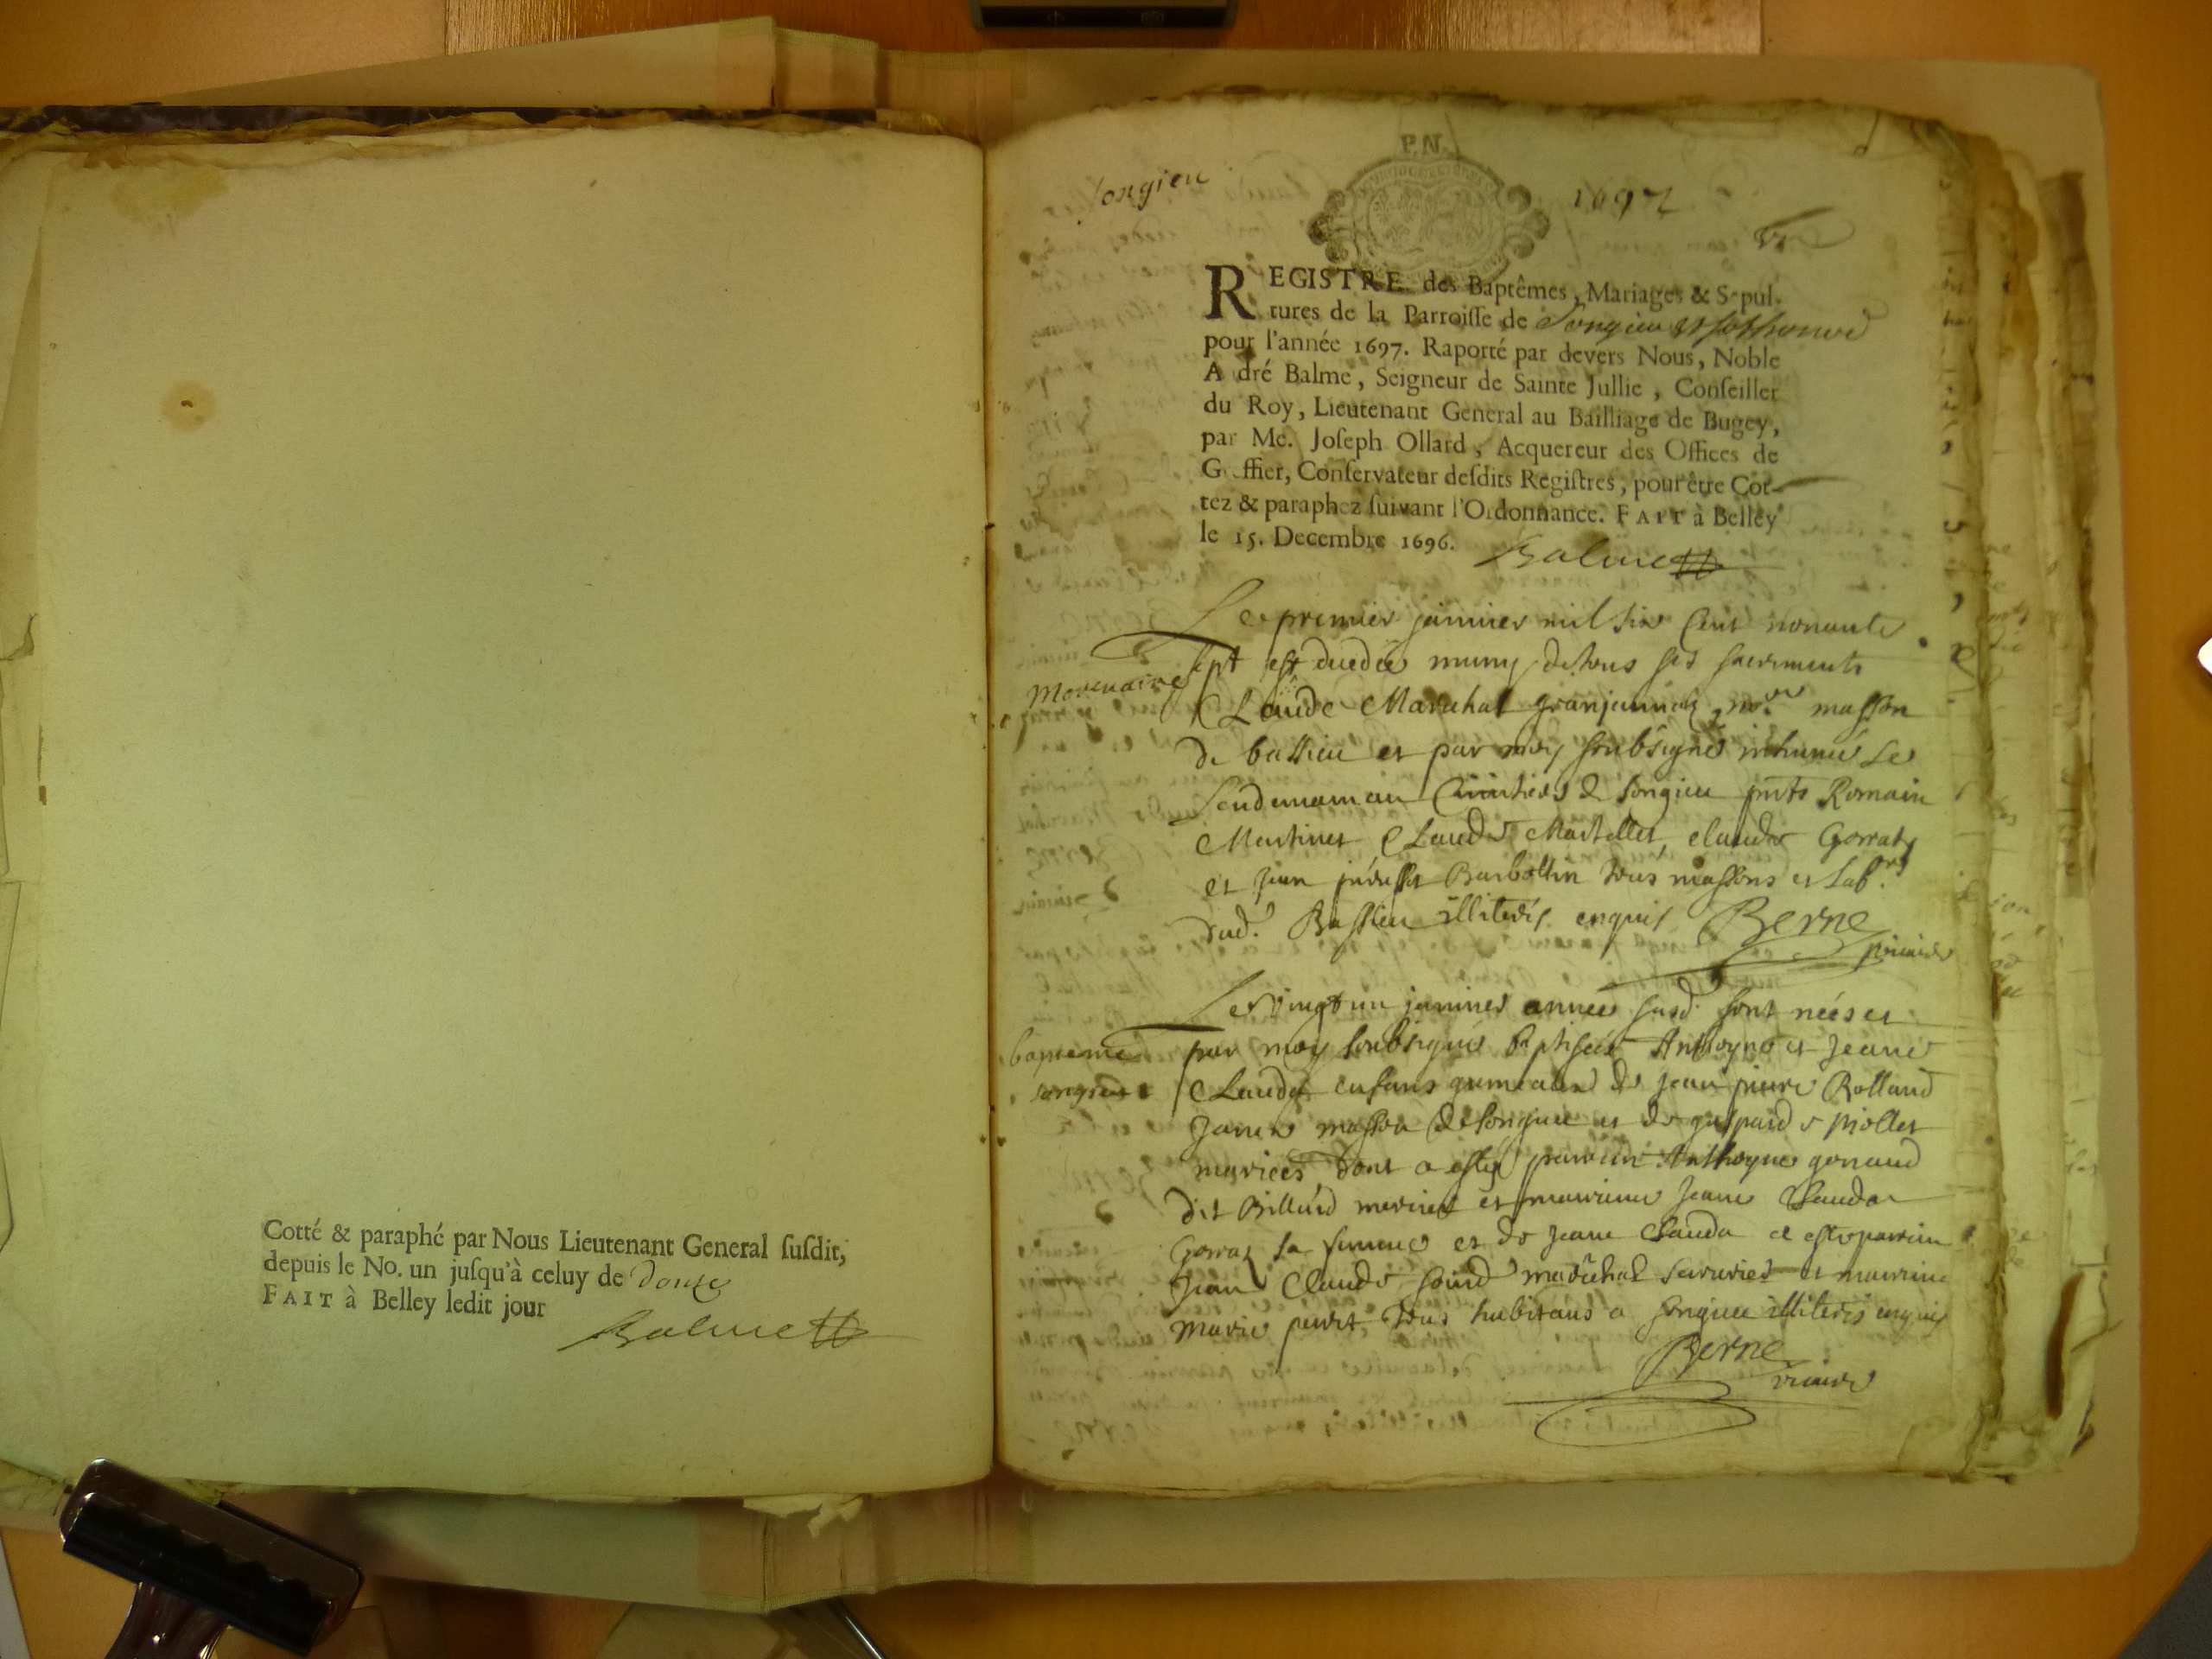 Cotté & paraphé par Nous Lieutenant General ſuſdit,
depuis le No. un juſqu'à celuy de douze
FAIT à Belley ledit jour
Balme
Songieu
P.N.
1697
REGISTRE des Baptêmes, Mariages & Sepul-
tures de la Parroiſſe de Songieu et Sothonod
pour l'année 1697. Raporté par devers Nous, Noble
A dré Balme, Seigneur de Sainte Jullie, Conſeiller
du Roy, Lieutenant General au Bailliage de Bugey,
par Me. Joſeph Ollard, Acquereur des Offices de
G effier, Conſervateur deſdits Regiſtres, pour être Cot-
tez & paraphez ſuivant l'Ordonnance. FAIT à Belley
le 15. Decembre 1696.
Balme
Le premier janvier mil six cent nonante
sept est decedé muny de tous ses sacrements
Claude Marechal masson
de bassieu et par moy soubsigné inhumé le
lendemain au Cimitiere de songieu pnts Romain
Martinet Claude Martellet, claude Gorraz
et jean Barbollin tous massons et lab.rs
dud. Bassieu illiterés enquis Berne
Mortuaire
Le vingt un janvier année susd. sont nées et
par moy soubsigné Baptisées Anthoyne et Jeane
Clauda enfans gemeaux de jean pierre Rolland
masson de songieu et de gasparde piollet
mariées dont a esté parrein Anthoyne gonand
dit Billard et marreine Jeane Clauda
Gorraz sa femme et de Jeane Clauda a esté parrein
Jean Claude marechal et marreine
Marie tous habitans a songieu illiterés enquis
Berne
vicaire
bapteme
songieu